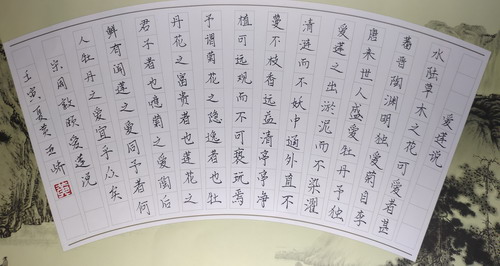 爱莲说
水陆草木之花可爱者甚
蕃晋陶渊明独爱菊自李
唐来世人盛爱牡丹予独
爱莲之出淤泥而不染濯
清涟而不妖中通外直不
蔓不枝香远益清亭亭净
植可远观而不可亵玩焉
予谓菊花之隐逸者也牡
丹花之富贵者也莲花之
君子者也噫菊之爱陶后
鲜有闻莲之爱同予者何
人牡丹之爱宜乎众矣
宋周敦颐爱莲说
壬寅夏